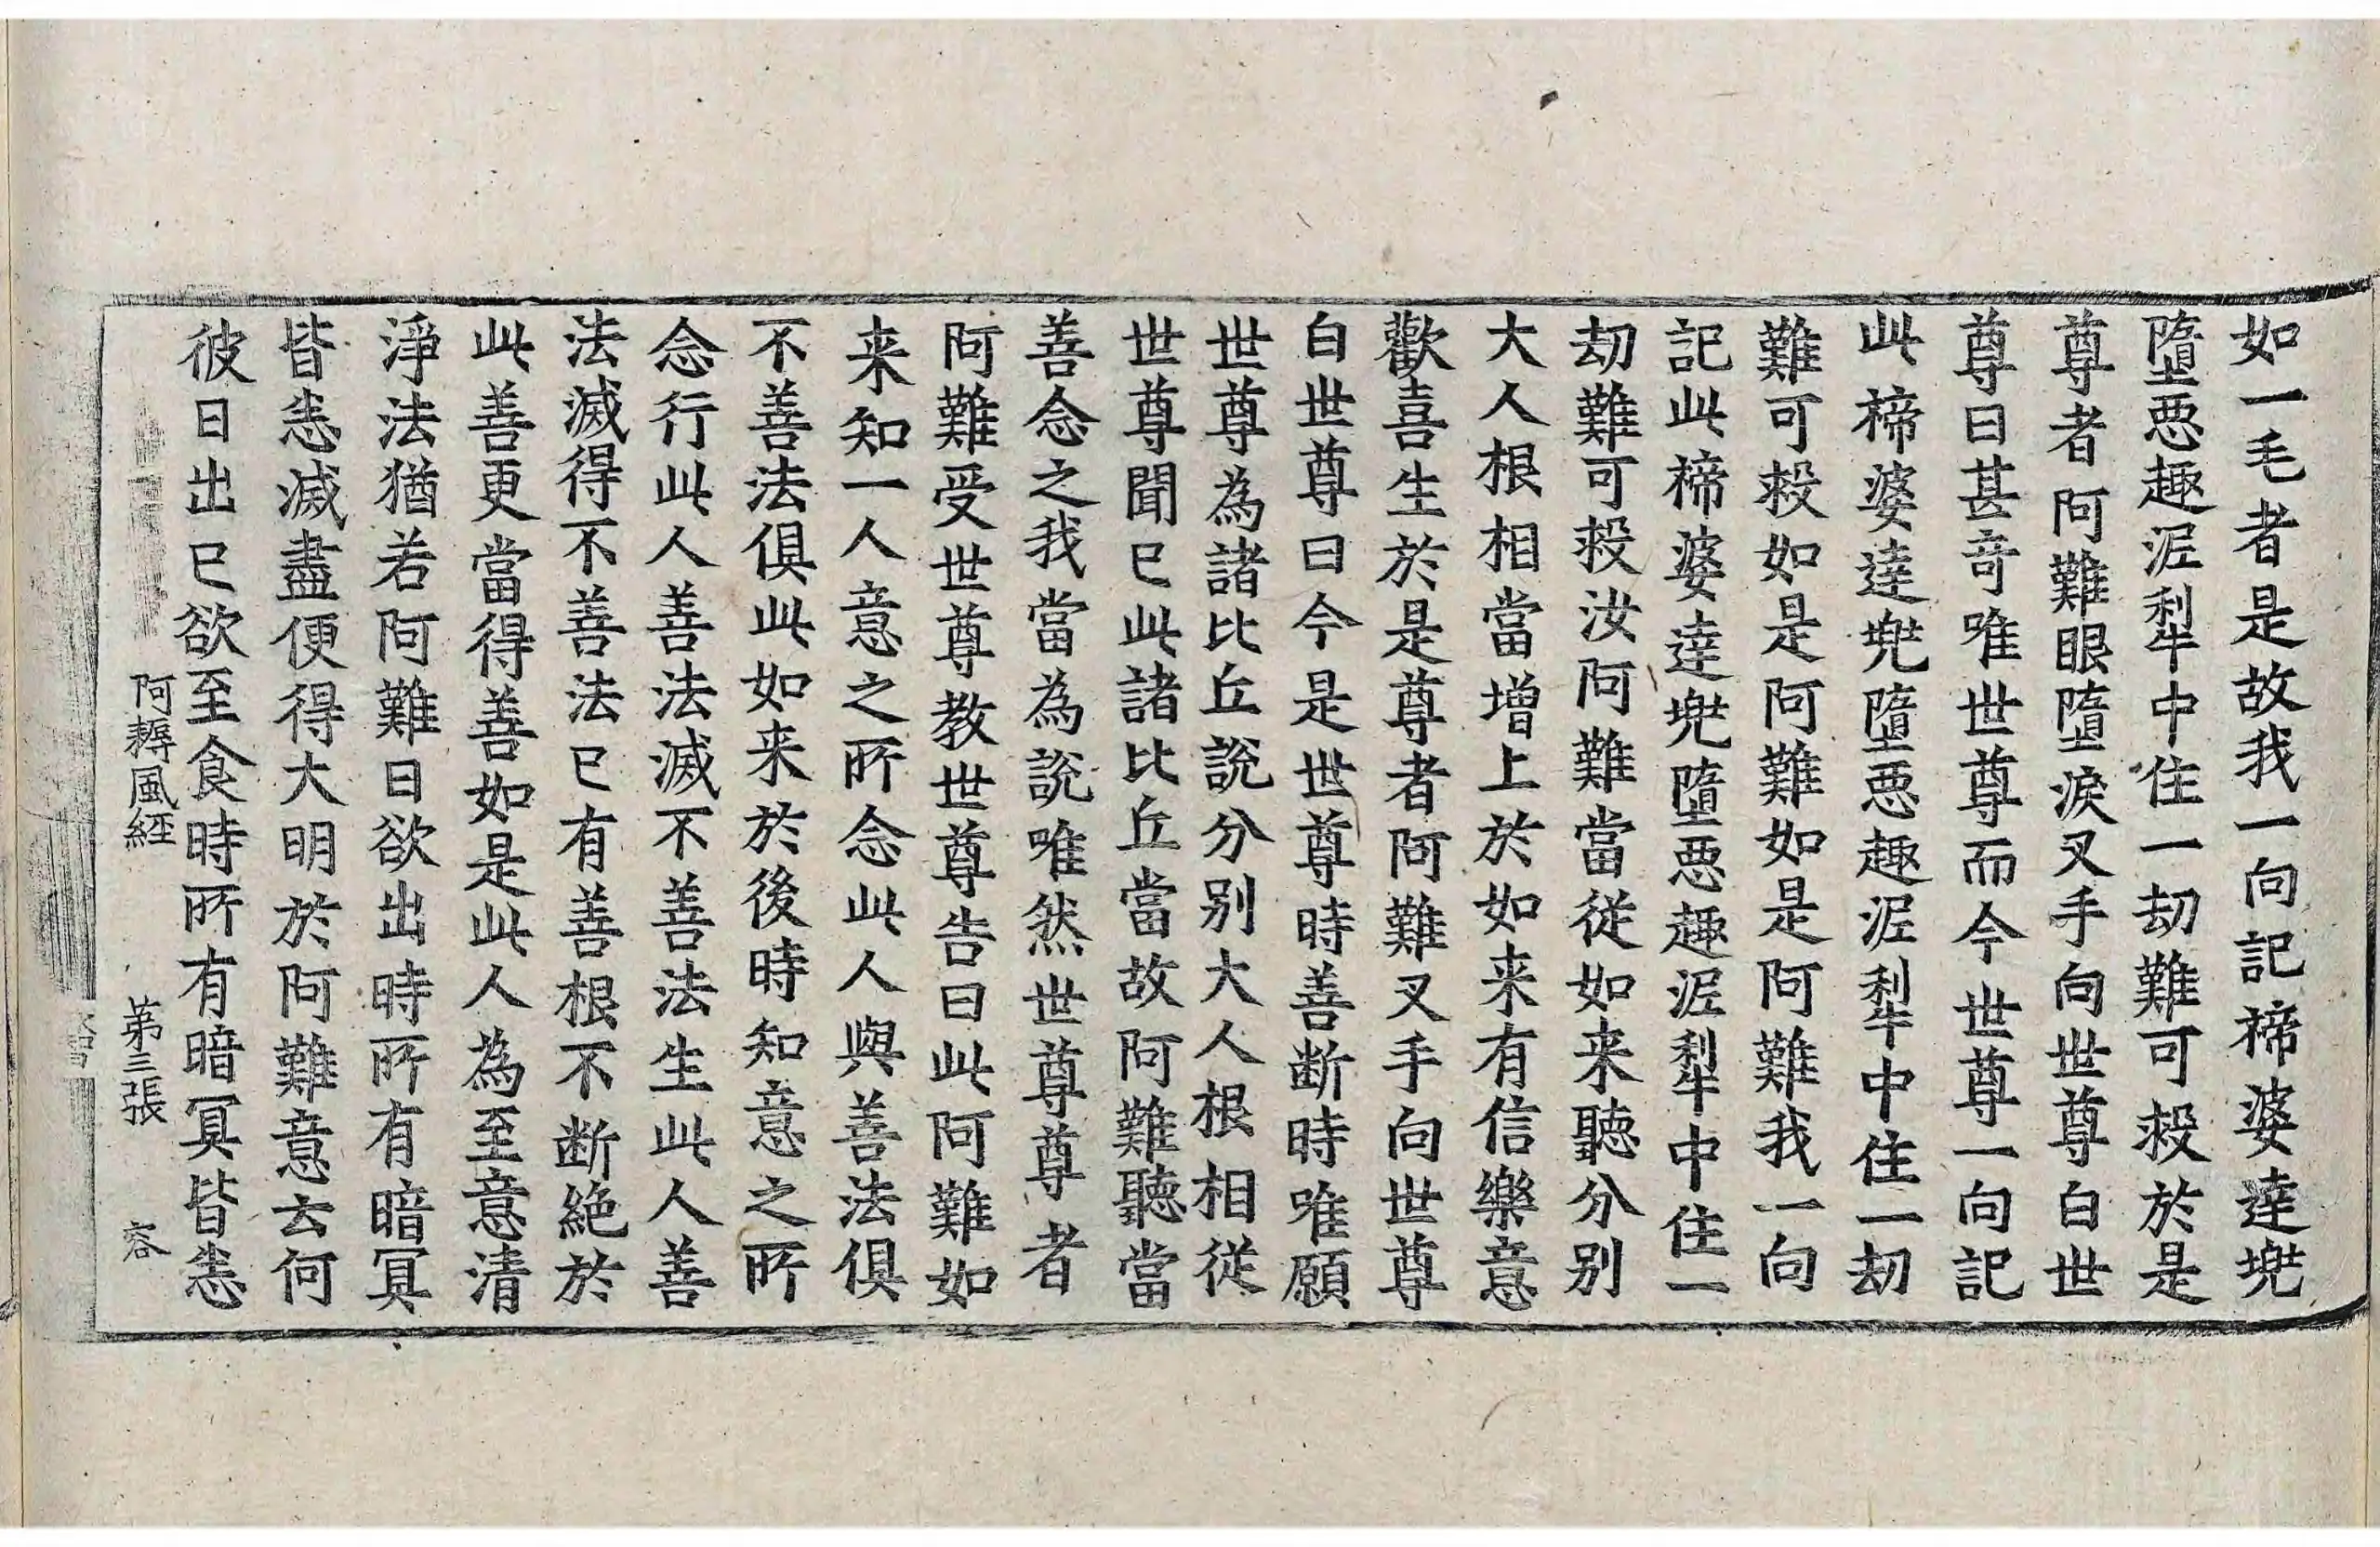 如一毛者是故我一向記褅婆達兠
墮惡趣泥犁中住一劫難可救於是
尊者阿難眼墮淚叉手向世尊白世
尊曰甚奇唯世尊而今世尊一向記
此褅婆達兠墮惡趣泥犁中住一劫
難可救如是阿難如是阿難我一向
記此褅婆達兠墮惡趣泥犁中住一
劫難可救汝阿難當從如来聽分别
大人根相當增上於如来有信樂意
歡喜生於是尊者阿難叉手向世尊
白世尊曰今是世尊時善断時唯願
世尊為諸比丘說分别大人根相從
世尊聞已此諸比丘當故阿難聽當
善念之我當為說唯然世尊尊者
阿難受世尊教世尊告曰此阿難如
来知一人意之所念此人與善法俱
不善法俱此如来於後時知意之所
念行此人善法滅不善法生此人善
法滅得不善法已有善根不断絶於
此善更當得善如是此人為至意清
淨法猶若阿難日欲出時所有暗冥
皆恙滅盡便得大明於阿難意云何
彼日出已欲至食時所有暗冥皆恙
阿耨風経　第三張　容